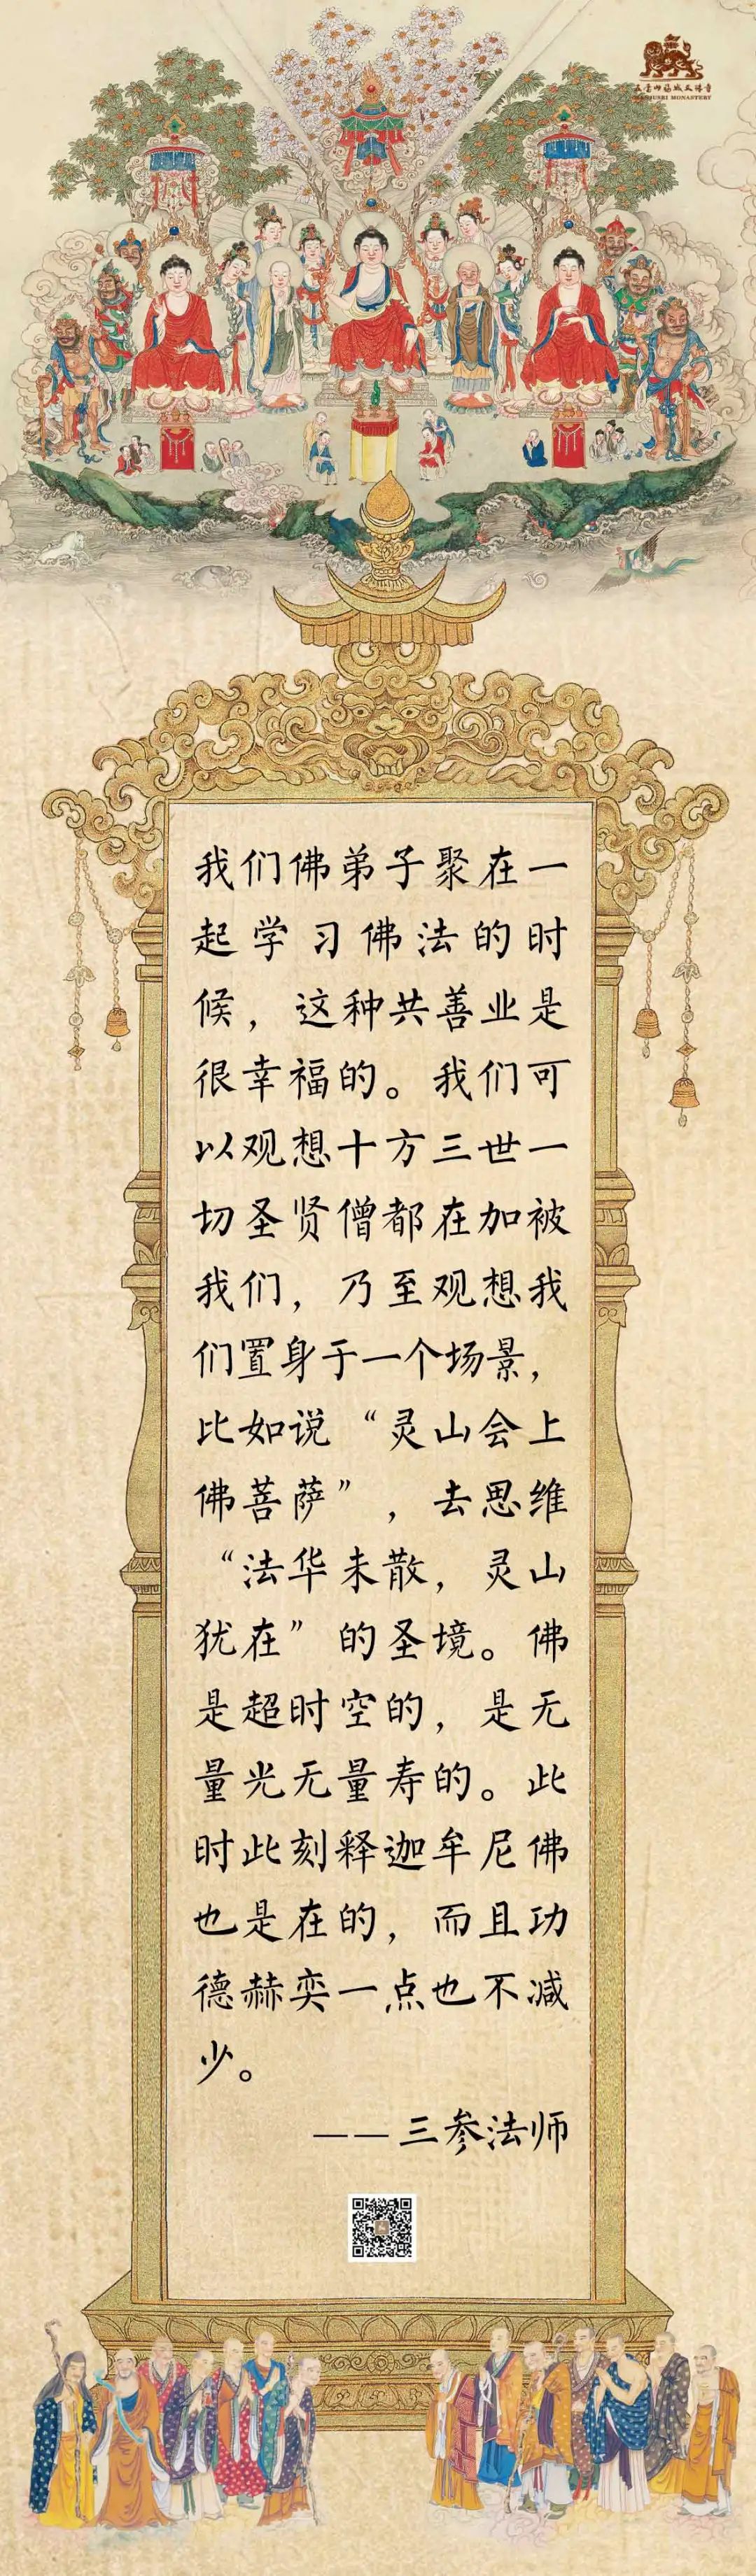 MANJUSRI MONASTERY
我们佛弟子聚在一
起学习佛法的时
候，这种共善业是
很幸福的。我们可
以观想十方三世一
切圣贤僧都在加被
我们，乃至观想我
们置身于一个场景，
比如说“灵山会上
佛菩萨”，去思维
“法华未散，灵山
犹在”的圣境。佛
是超时空的，是无
量光无量寿的。此
时此刻释迦牟尼佛
也是在的，而且功
德赫奕一点也不减
少。
——三参法师